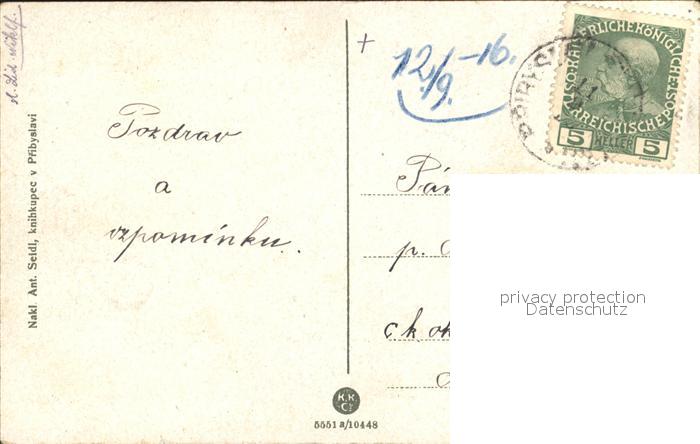 Nakl. Ant. Seidl, knihkupec v Přibyslavi
Pozdrav
a
vzpomínku.
12/9. -16.
KAISERLICHE KÖNIGLICHE
ÖSTERREICHISCHE POST
5 HELLER 5
Pán
p.
c.k. ok
K.K.
5551 a/10448
privacy protection
Datenschutz